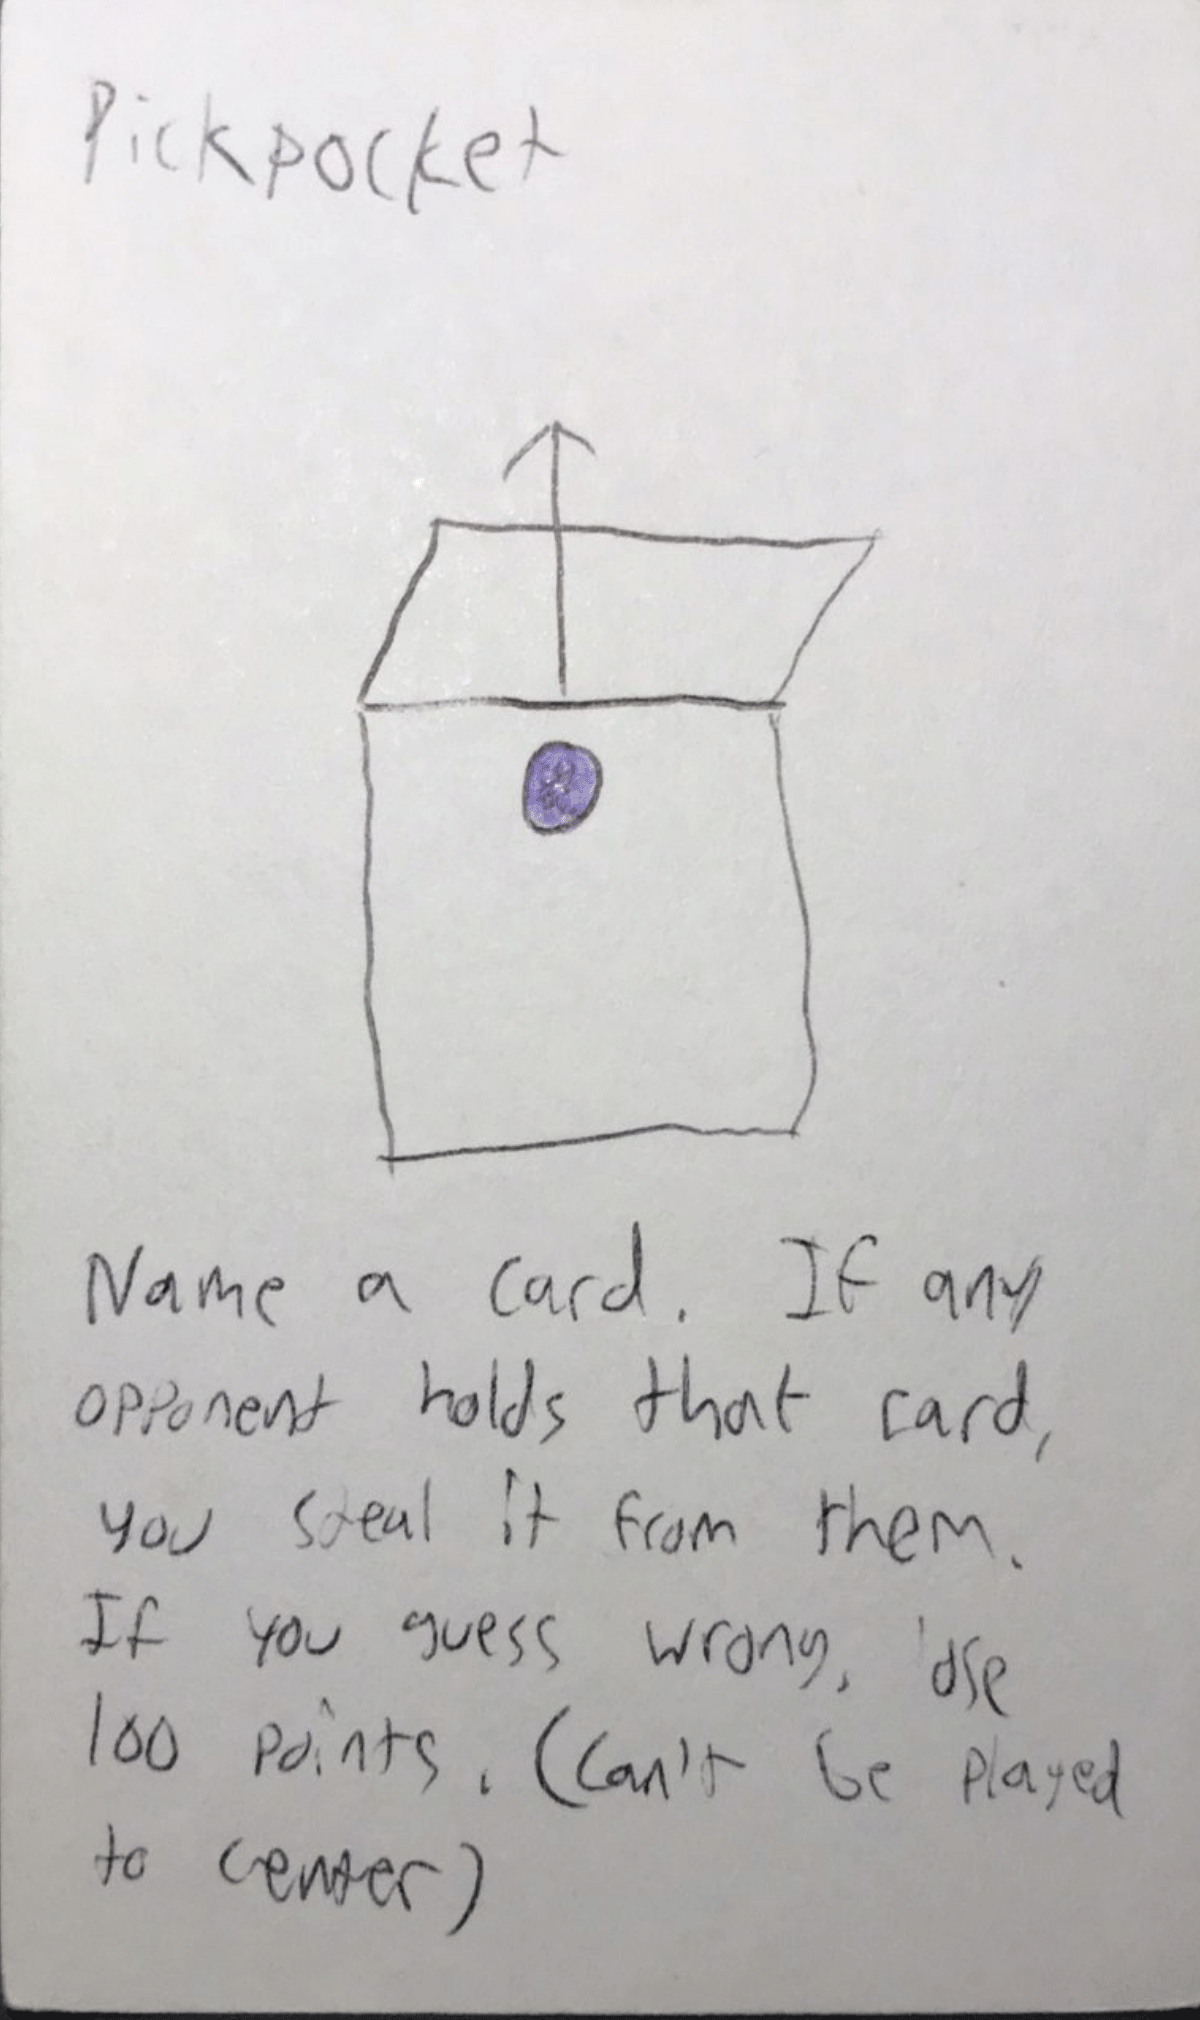 Pickpocket
Name a card. If any
opponent holds that card,
you steal it from them.
If you guess wrong, lose
100 points. (Can't be played
to center)